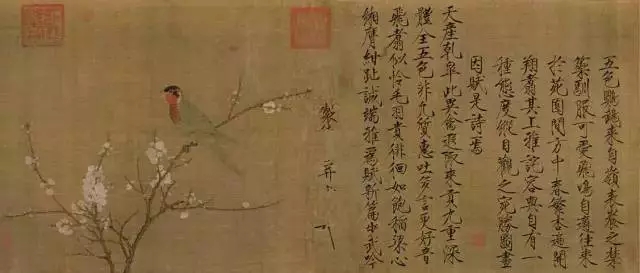 五色鸚鵡來自嶺表養之禁
籞馴服可愛飛鳴自適往來
於苑囿間方中春繁杏遍開
翔翥其上雅詫容與自有一
種態度縱目觀之宛勝圖畫
因賦是詩焉
天產乾皋此異禽遐陬來貢九重深
體全五色非凡質惠吐多言更好音
飛翥似憐毛羽貴徘徊如飽稻粱心
緗膺紺趾誠端雅為賦新篇步武吟